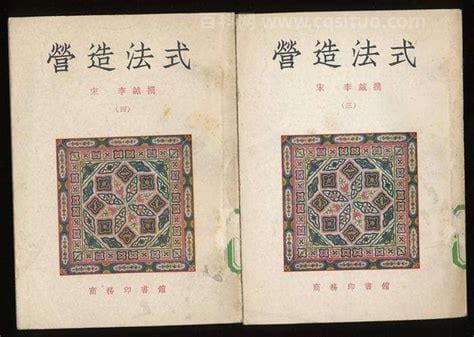 營造法式
宋 李誡撰
(四)
商務印書館
營造法式
宋 李誡撰
(三)
商務印書館
www.cqsituo.com